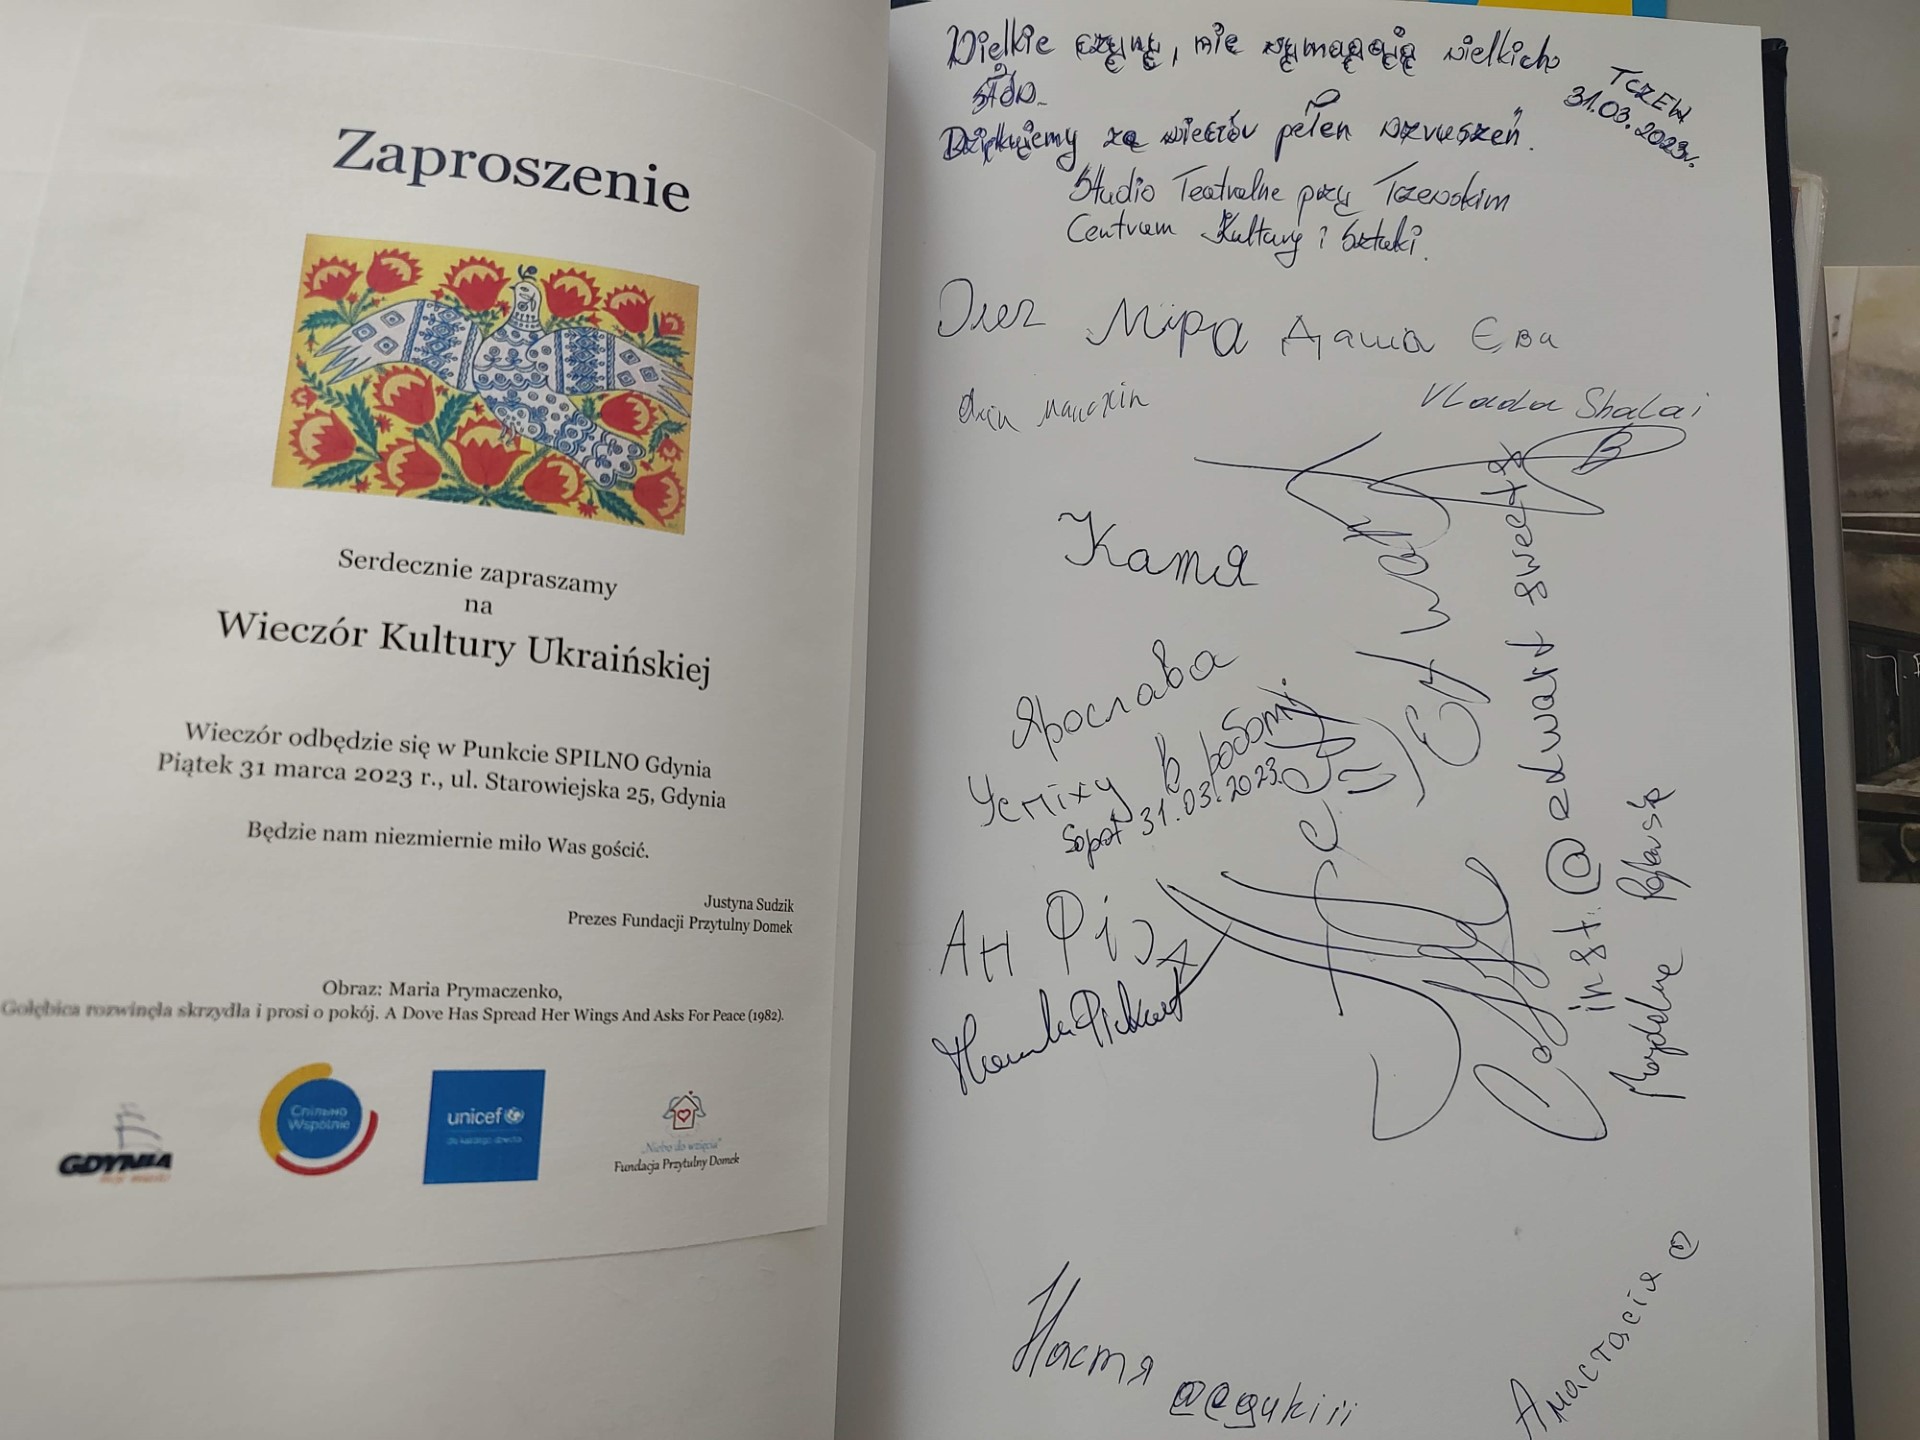 Zaproszenie
Serdecznie zapraszamy
na
Wieczór Kultury Ukraińskiej
Wieczór odbędzie się w Punkcie SPILNO Gdynia
Piątek 31 marca 2023 r., ul. Starowiejska 25, Gdynia
Będzie nam niezmiernie miło Was gościć.
Justyna Sudzik
Prezes Fundacji Przytulny Domek
Obraz: Maria Prymaczenko,
Gołębica rozwinęła skrzydła i prosi o pokój. A Dove Has Spread Her Wings And Asks For Peace (1982).
GDYNIA
Спільно
Wspólnie
unicef
dla każdego dziecka
"Niebo do wzięcia"
Fundacja Przytulny Domek
Wielkie czyny, nie wymagają wielkich
słów.
TCZEW
31.03.2023r.
Dziękujemy za wieczór pełen wzruszeń.
Studio Teatralne przy Tczewskim
Centrum Kultury i Sztuki.
Олег Міра Даша Єва
Vlada Shalai
Катя
Ярослава
Успіху в роботі
Sopot 31.03.2023.
inst. @edwart sweets
Magdalena
Настя @egukiii
Анастасія